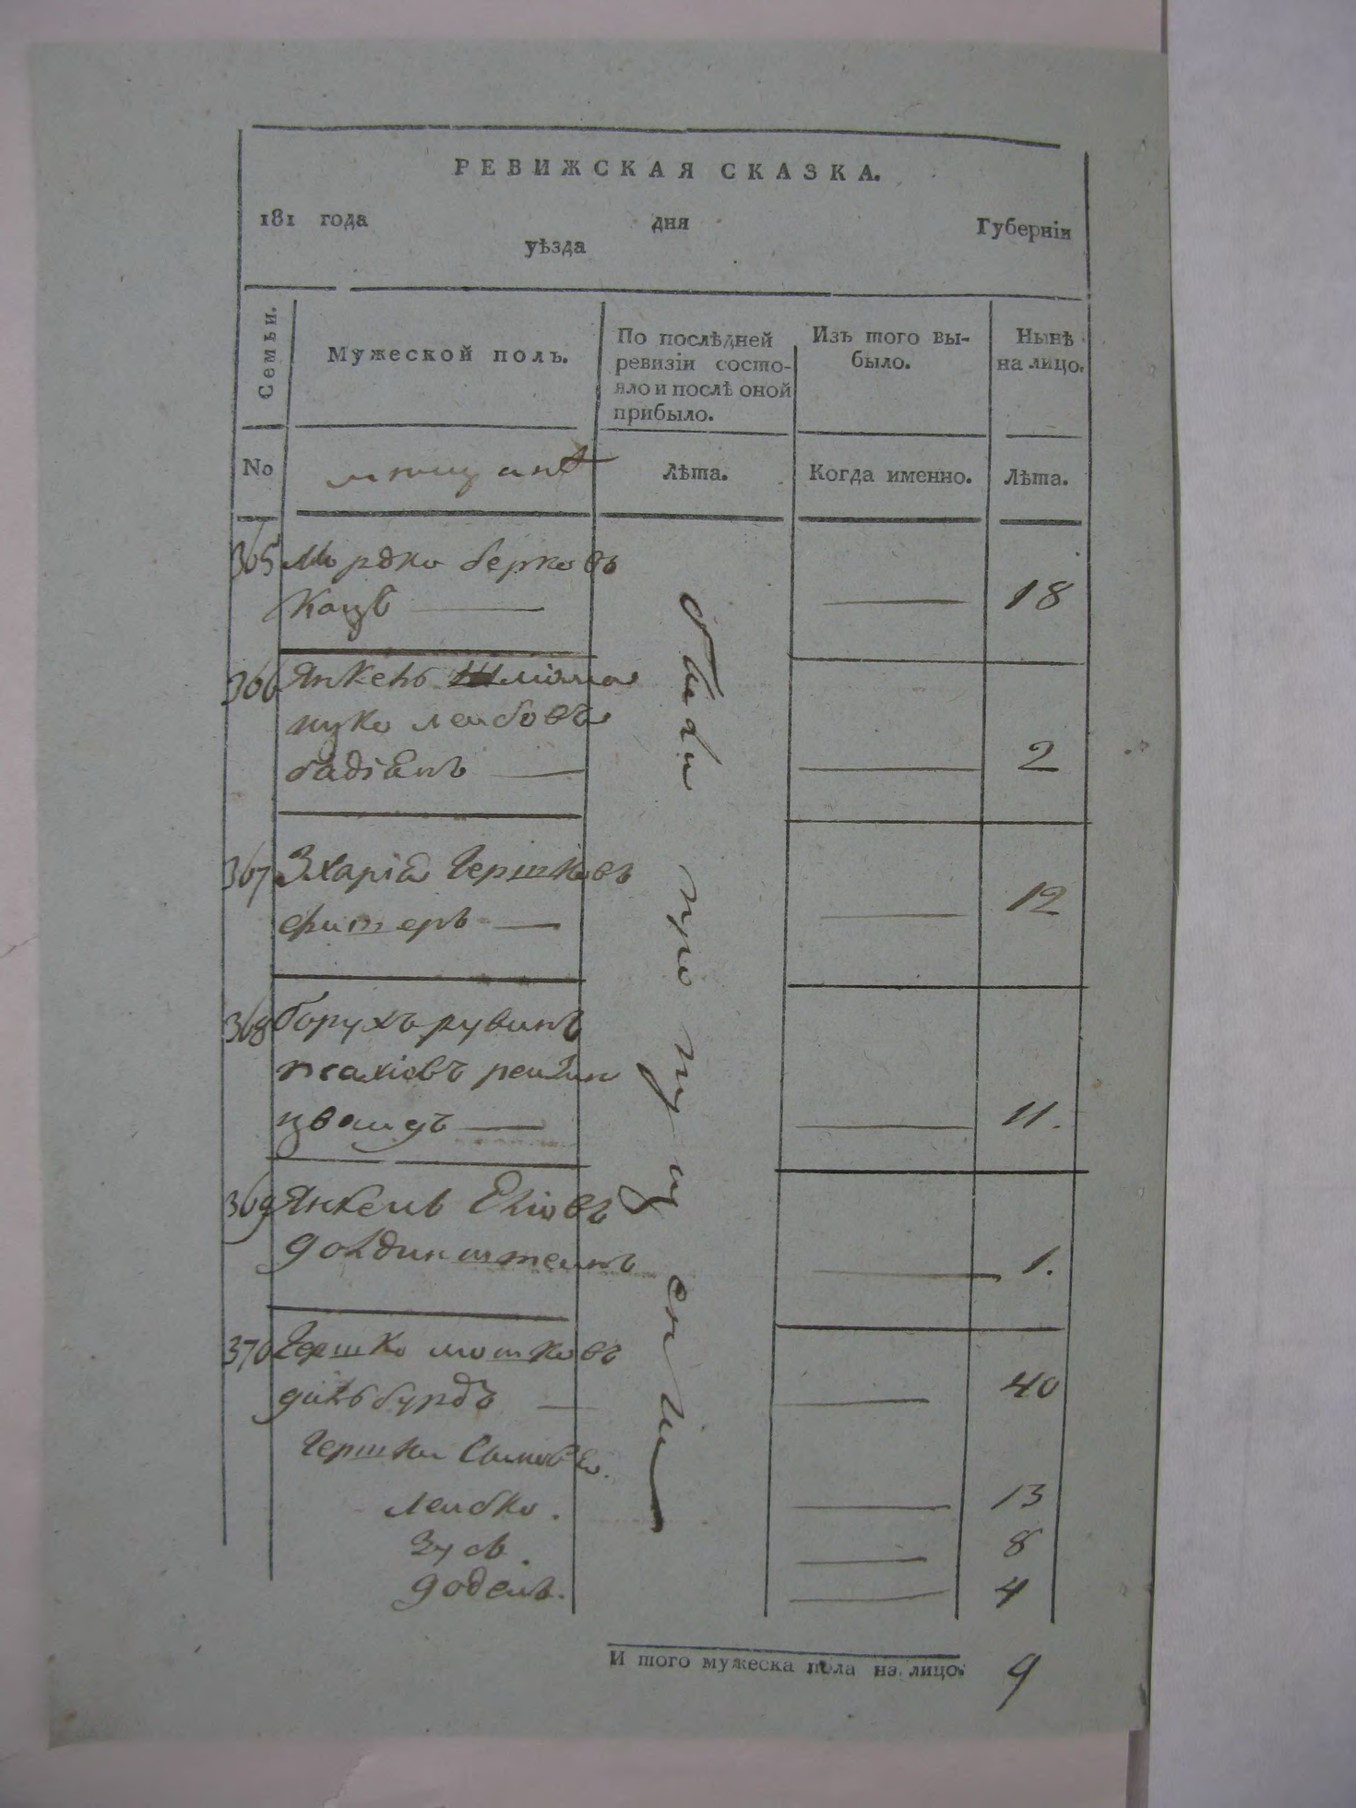 РЕВИЖСКАЯ СКАЗКА.
181 года дня Губерніи
уѣзда
Семьи.
Мужеской полъ.
По послѣдней ревизіи состояло и послѣ оной прибыло.
Изъ того выбыло.
Нынѣ на лицо.
No
мѣщанѣ
Лѣта.
Когда именно.
Лѣта.
были пропущенны
365 Мордко берковъ
Кацъ — — 18
366 Янкель Шліома
ицко леибовъ
— — 2
367 Зхарія Гершковъ
фитеръ — — 12
368 борухъ рувинъ
псахіовъ
— — 11.
369 Янкель Еліовъ
голдинштеинъ — 1.
370 Гершко мошковъ
гильбурдъ — — 40
Гершки Сыновья.
леибко. — 13
Зусь. — 8
годель. — 4
И того мужеска пола на лицо. 9